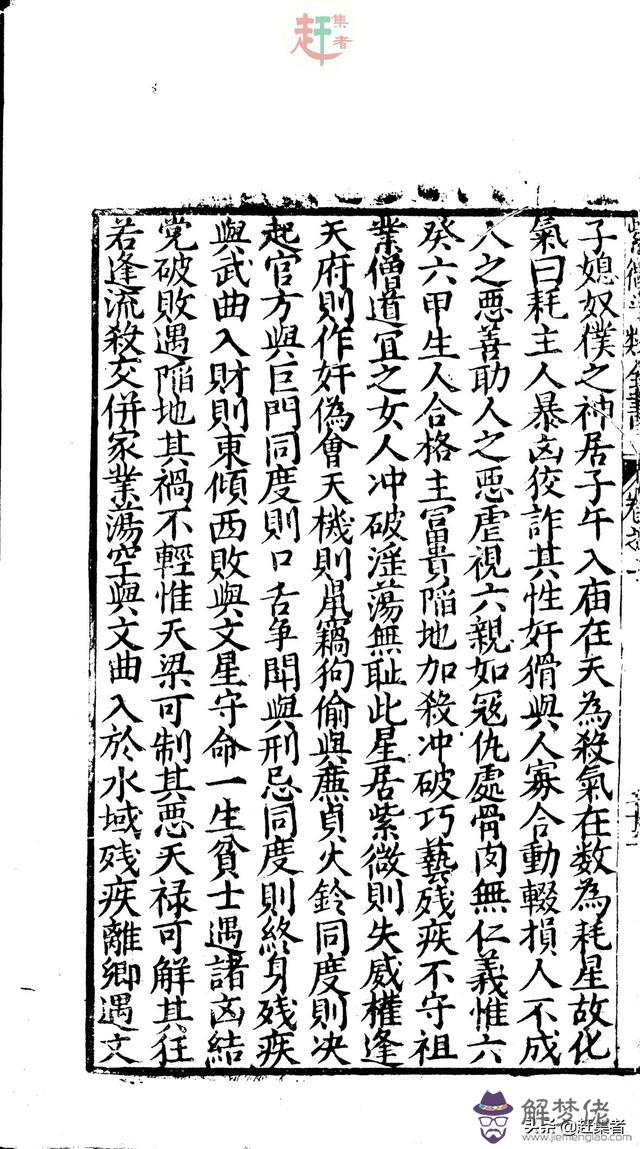 赶集者
子媳奴僕之神居子午入庙在天為殺氣在数為耗星故化
氣曰耗主人暴凶狡詐其性奸猾與人寡合動輟損人不成
人之惡善助人之惡虐視六親如冦仇處骨肉無仁義惟六
癸六甲生人合格主富貴陥地加殺冲破巧藝残疾不守祖
業僧道宜之女人冲破淫蕩無耻此星居紫微則失威權逢
天府則作奸偽會天機則鼠竊狗偷與廉貞火鈴同度則决
起官方與巨門同度則口舌争閗與刑忌同度則終身残疾
與武曲入財則東傾西敗與文星守命一生貧士遇諸凶結
党破敗遇陥地其禍不輕惟天梁可制其惡天禄可解其狂
若逢流殺交併家業蕩空與文曲入於水域残疾離鄉遇文
解梦佬
头条@赶集者
www.jiemenglao.com